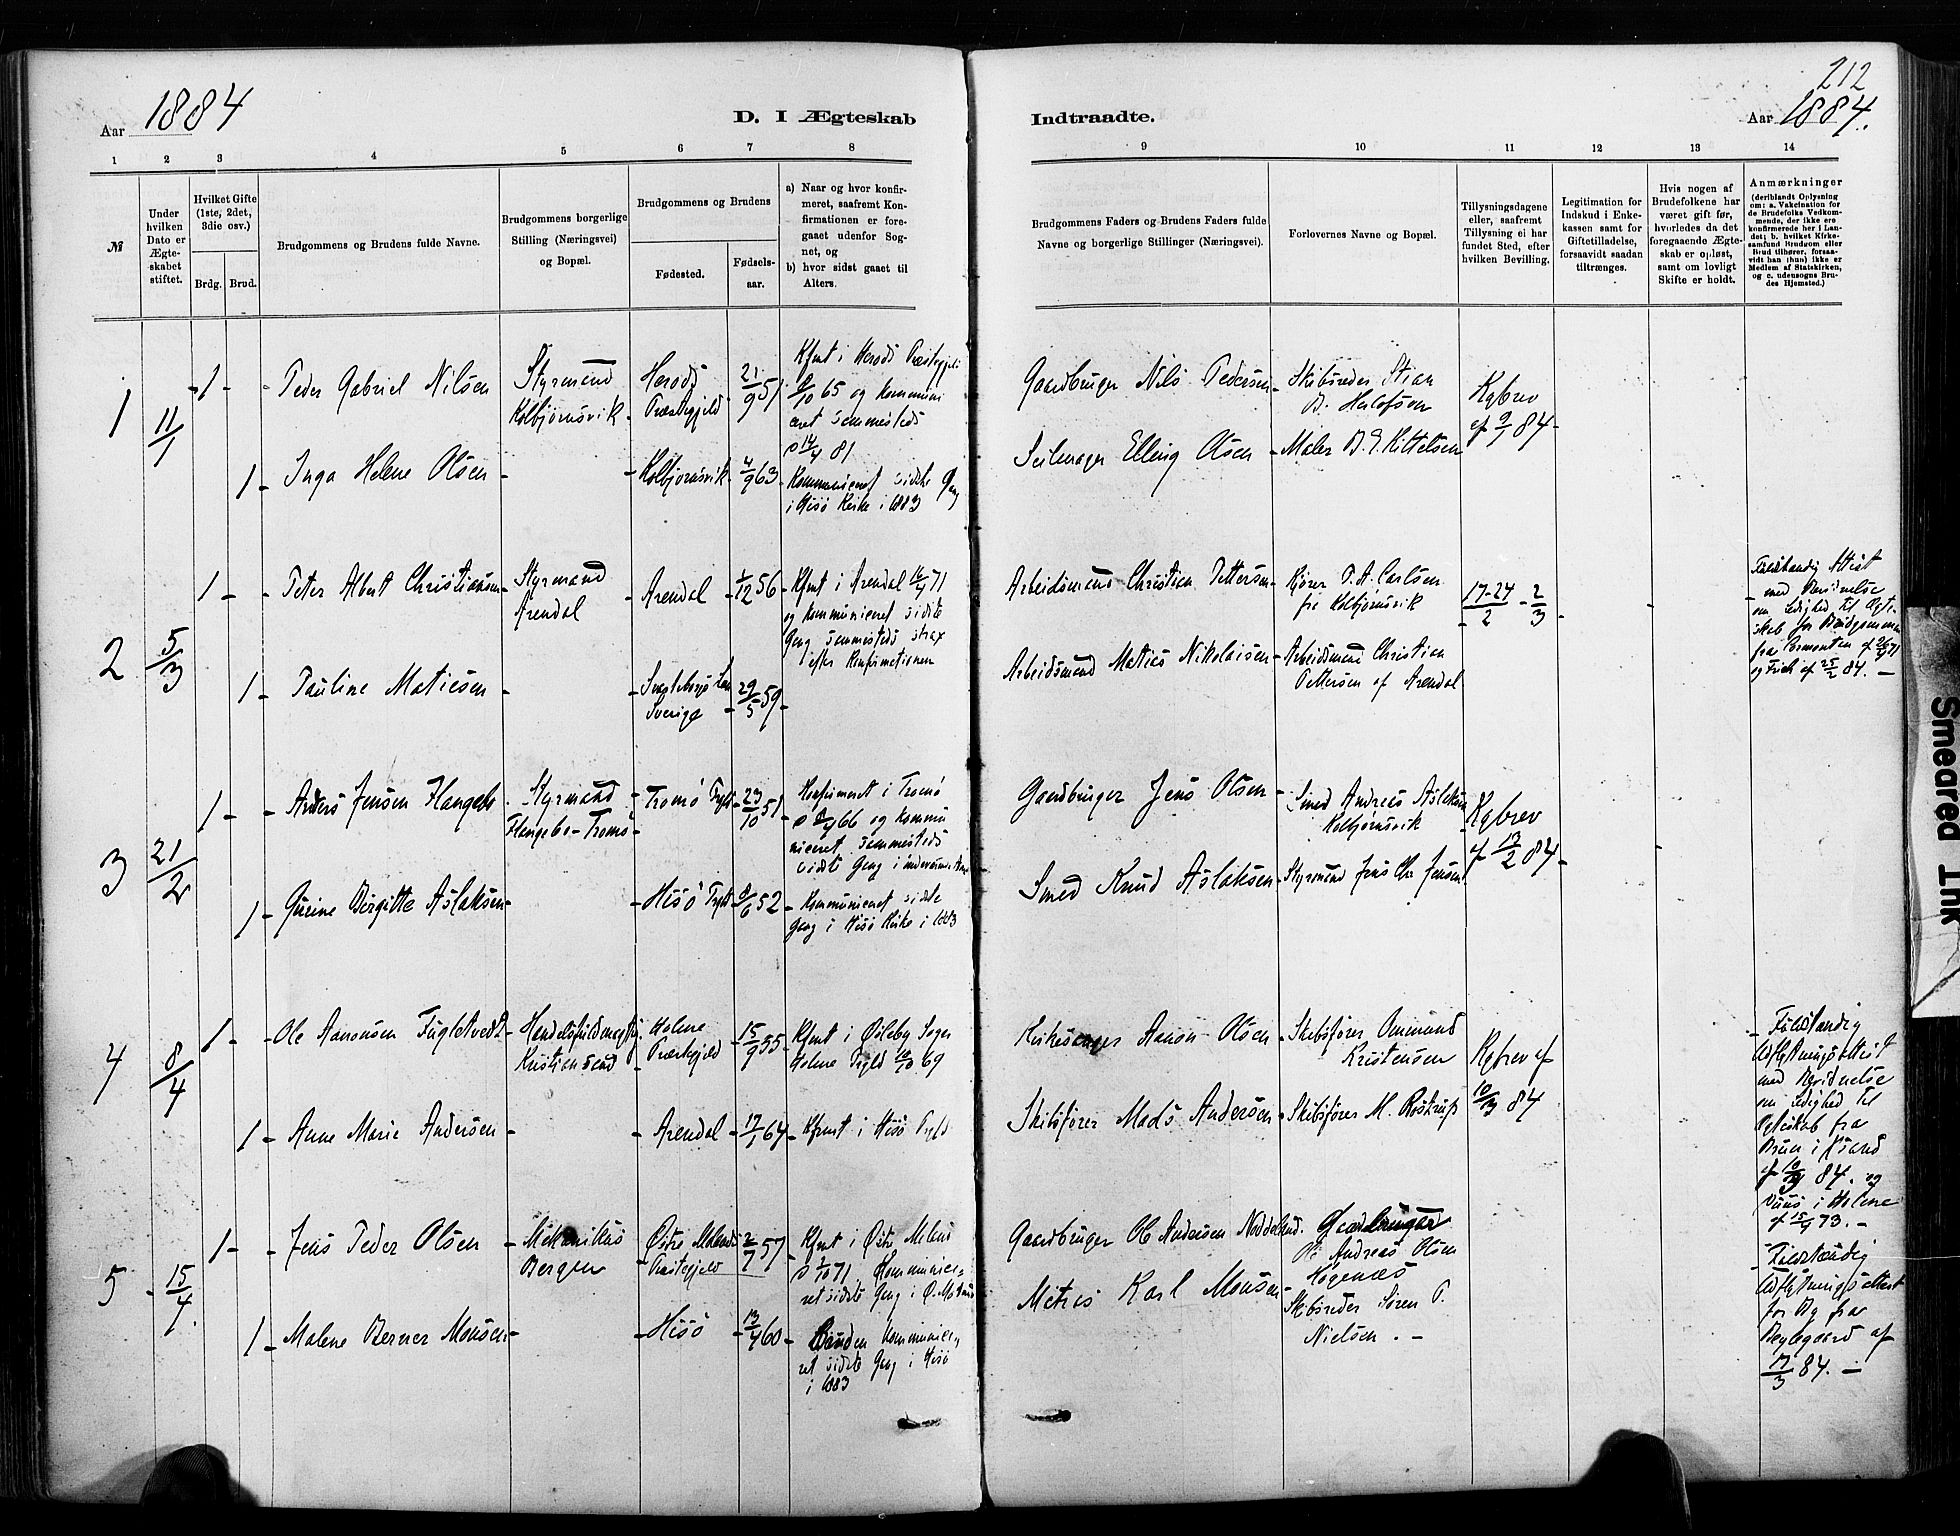 212
Aar 1884
D. I Ægteskab
Indtraadte.
Aar 1884.
1 2 3 4 5 6 7 8 9 10 11 12 13 14
№
Under
hvilken
Dato er
Ægte-
skabet
stiftet.
Hvilket Gifte
(1ste, 2det,
3die osv.)
Brdg. Brud.
Brudgommens og Brudens fulde Navne.
Brudgommens borgerlige
Stilling (Næringsvei)
og Bopæl.
Brudgommens og Brudens
Fødested.
Fødsels-
aar.
a) Naar og hvor konfir-
meret, saafremt Kon-
firmationen er fore-
gaaet udenfor Sog-
net, og
b) hvor sidst gaaet til
Alters.
Brudgommens Faders og Brudens Faders fulde
Navne og borgerlige Stillinger (Næringsvei).
Forlovernes Navne og Bopæl.
Tillysningsdagene
eller, saafremt
Tillysning ei har
fundet Sted, efter
hvilken Bevilling.
Legitimation for
Indskud i Enke-
kassen samt for
Giftetilladelse,
forsaavidt saadan
tiltrænges.
Hvis nogen af
Brudefolkene har
været gift før,
hvorledes da det
foregaaende Ægte-
skab er opløst,
samt om lovligt
Skifte er holdt.
Anmærkninger
(deriblandt Oplysning
om: a. Vakcination for
de Brudefolks Vedkom-
mende, der ikke ere
konfirmerede her i Lan-
det; b. hvilket Kirke-
samfund Brudgom eller
Brud tilhører, forsaa-
vidt han (hun) ikke er
Medlem af Statskirken,
og c. udensogns Bru-
des Hjemsted.)
1
11/1
1
Peder Gabriel Nilsen
Styrmand
Kolbjørnsvik
Herods
Præstegjeld
21/9 51
Kfmt i Herods Præstegjeld
/10 65 og kommuni
ceret sammesteds
81
Gaardbruger Nils Pedersen
Skibsreder Stian
B. Herlofson
Kgbrev
af 9/1 84
1
Inga Helene Olsen
Kolbjørnsvik
4/9 63
Kommuniceret sidste Gang
i Hisø Kirke i 1883
Seilmager Elling Olsen
Maler B. E. Kittelsen
2
5/3
1
Peter Albert Christiansen
Styrmand
Arendal
Arendal
1/12 56
Kfmt i Arendal 16/4 71
og kommuniceret sidste
Gang sammesteds strax
efter Konfirmationen
Arbeidsmand Christian Pettersen
Kjører P. A. Carlsen
fra Kolbjørnsvik
17-24/2 - 2/3
Fuldstændig Attest
med Bevidnelse
om Ledighed til Ægte-
skab for Brudgommen
fra 71
og Frich af 25/2 84.
1
Pauline Matiesen
Sverige
29/5 59
Arbeidsmand Maties Nikolaisen
Arbeidsmand Christian
Pettersen af Arendal
3
21/2
1
Anders Jensen Flangebo
Styrmand
Flangebo - Tromø
Tromø Pgjld
23/10 51
Konfirmeret i Tromø
66 og kommu
niceret sammesteds
sidste Gang i
Gaardbruger Jens Olsen
Smed Andreas Aslaksen
Kolbjørnsvik
Kgbrev
af 13/2 84
1
Gurine Birgitte Aslaksen
Hisø Pgjld
/6 52
Kommuniceret sidste
Gang i Hisø Kirke i 1883
Smed Knud Aslaksen
Styrmand Jens Chr Jensen
4
8/4
1
Ole Aanonsen Fugletvedt
Handelsfuldmægtig
Kristiansand
Holme
Præstegjeld
15/9 55
Kfmt i Øsleby Sogn
Holme Pgjld 10/10 69
Kirkesanger Aanon Olsen
Skibsfører Ommund
Kristensen
Kgbrev af
10/3 84
Fuldstændig
Udflytningsattest
med Bevidnelse
om Ledighed til
Ægteskab fra
Bruun i Ksand
af 10/3 84. og
i Holme
af 15/9 73.
1
Anne Marie Andersen
Arendal
17/1 64
Kfmt i Hisø Pgjld
Skibsfører Mads Andersen
Skibsfører M. Rostrup
5
15/4
1
Jens Peder Olsen
Mekanikus
Bergen
Østre Moland
Præstegjeld
2/7 57
Kfmt i Østre Moland
/10 71 Kommunice-
ret sidste Gang i Ø. Moland
Gaardbruger Ole Andersen Neddelund
Gaardbruger
Ole Andreas Olsen
Høgenæs
Fuldstændig
Udflytningsattest
for Bg fra
Beylegaard af
17/3 84.
1
Malene Berner Monsen
Hisø
13/4 60
Bruden kommunice-
ret sidste Gang i Hisø
i 1883
Matros Karl Monsen
Skibsreder Søren P.
Nielsen.
Smeared Ink